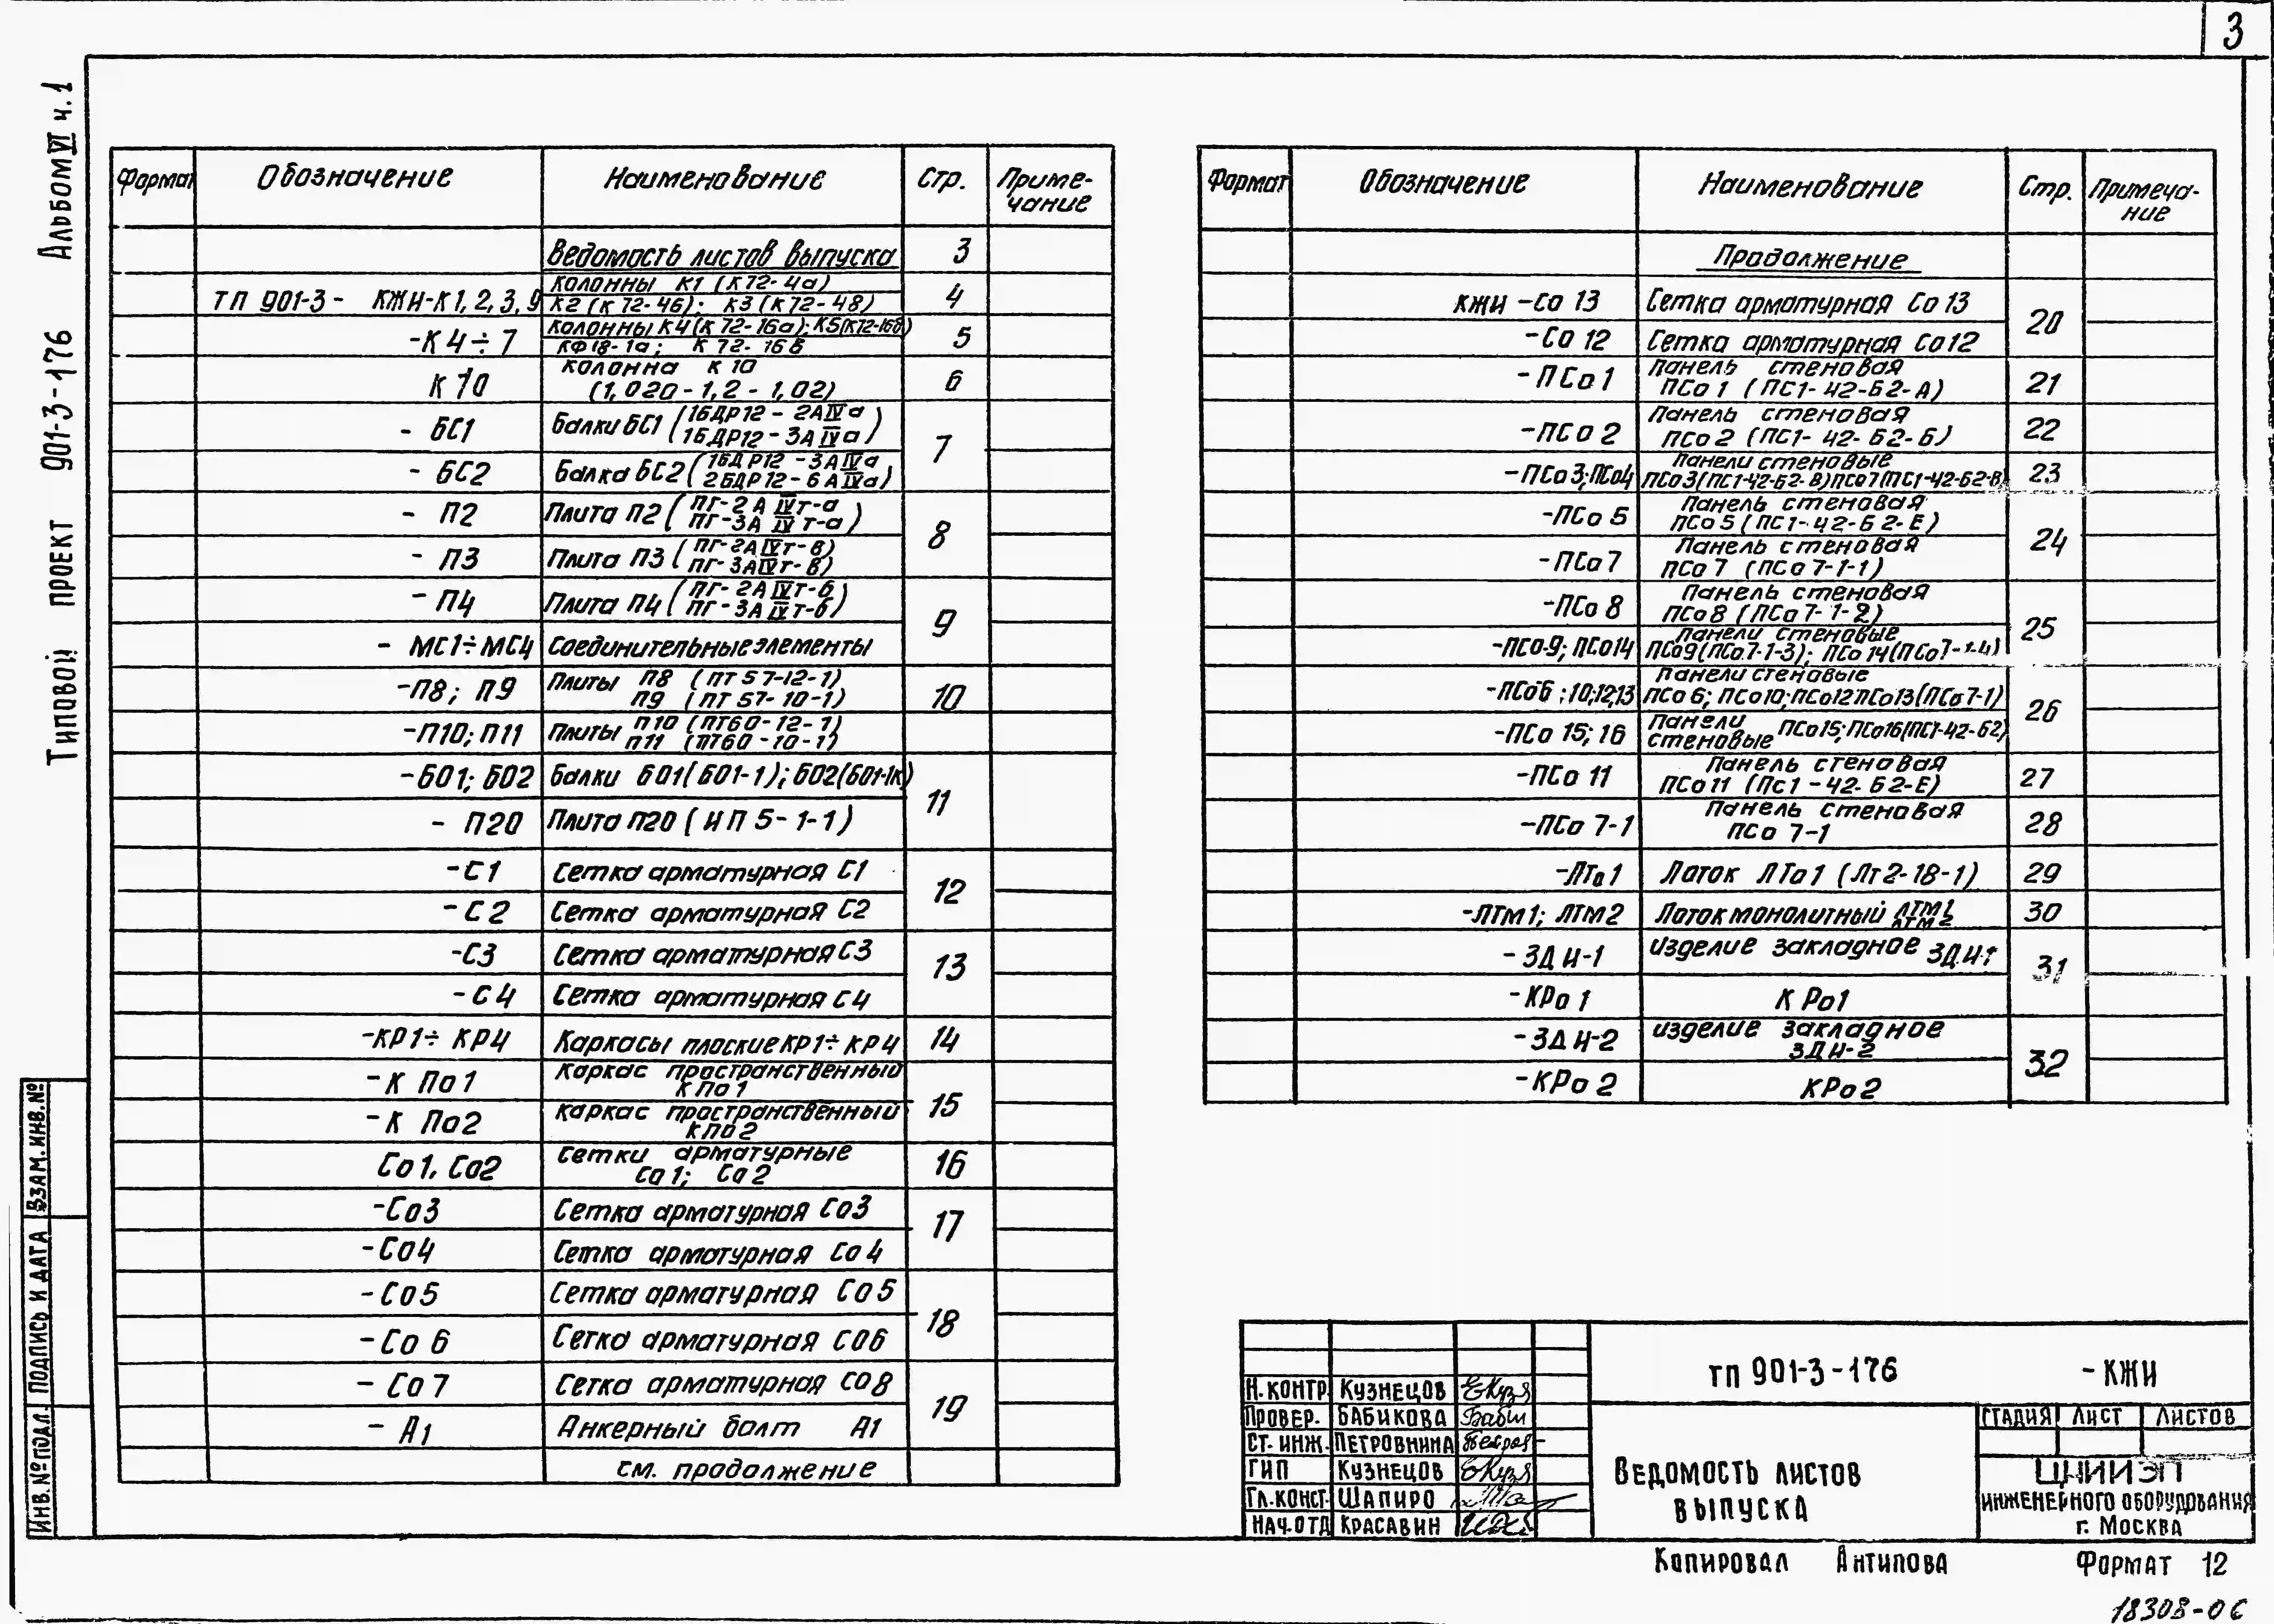 3
Типовой проект 901-3-176 Альбом VI ч.1
Формат Обозначение Наименование Стр. Приме-
чание
Ведомость листов выпуска 3
ТП 901-3- КЖИ-К1,2,3,9 Колонны К1 (К72-4а) 4
К2 (К72-4б); К3 (К72-4в)
-К4÷7 Колонны К4(К72-16а); К5(К72-16б) 5
КФ18-1а; К 72-16в
К10 Колонна К10 6
(1,020-1,2-1,02)
- БС1 Балки БС1 (1БДР12-2АIVа 7
1БДР12-3АIVа)
- БС2 Балка БС2 (1БДР12-3АIVа
2БДР12-6АIVа)
- П2 Плита П2 (ПГ-2АIVт-а 8
ПГ-3АIVт-а)
- П3 Плита П3 (ПГ-2АIVт-в)
ПГ-3АIVт-в)
- П4 Плита П4 (ПГ-2АIVт-б 9
ПГ-3АIVт-б)
- МС1÷МС4 Соединительные элементы
-П8; П9 Плиты П8 (ПТ57-12-1) 10
П9 (ПТ57-10-1)
-П10; П11 Плиты П10 (ПТ60-12-1)
П11 (ПТ60-10-1)
-БО1; БО2 Балки БО1(БО1-1); БО2(БО1-1к) 11
- П20 Плита П20 (ИП5-1-1)
-С1 Сетка арматурная С1 12
-С2 Сетка арматурная С2
-С3 Сетка арматурная С3 13
-С4 Сетка арматурная С4
-КР1÷КР4 Каркасы плоские КР1÷КР4 14
-К По1 Каркас пространственный 15
К По1
-К По2 Каркас пространственный
КПо2
Со1, Со2 Сетки арматурные 16
Со1; Со2
-Со3 Сетка арматурная Со3 17
-Со4 Сетка арматурная Со4
-Со5 Сетка арматурная Со5 18
-Со6 Сетка арматурная Со6
-Со7 Сетка арматурная Со8 19
- А1 Анкерный болт А1
см. продолжение
Формат Обозначение Наименование Стр. Примеча-
ние
Продолжение
КЖИ -Со 13 Сетка арматурная Со13 20
-Со 12 Сетка арматурная Со12
-ПСо1 Панель стеновая 21
ПСо1 (ПС1-42-Б2-А)
-ПСо2 Панель стеновая 22
ПСо2 (ПС1-42-Б2-Б)
-ПСо3; ПСо4 Панели стеновые 23
ПСо3(ПС1-42-Б2-В) ПСо7(ПС1-42-Б2-В)
-ПСо5 Панель стеновая 24
ПСо5 (ПС1-42-Б2-Е)
-ПСо7 Панель стеновая
ПСо7 (ПСо7-1-1)
-ПСо8 Панель стеновая 25
ПСо8 (ПСо7-1-2)
-ПСо9; ПСо14 Панели стеновые
ПСо9(ПСо7-1-3); ПСо14(ПСо7-1-4)
-ПСо6; 10;12;13 Панели стеновые 26
ПСо6; ПСо10; ПСо12 ПСо13(ПСо7-1)
-ПСо15; 16 Панели стеновые ПСо15; ПСо16(ПС1-42-Б2)
-ПСо11 Панель стеновая 27
ПСо11 (ПС1-42-Б2-Е)
-ПСо7-1 Панель стеновая 28
ПСо 7-1
-ЛТо1 Лоток ЛТо1 (ЛТ2-18-1) 29
-ЛТМ1; ЛТМ2 Лоток монолитный ЛТМ1 ЛТМ2 30
-ЗДИ-1 Изделие закладное ЗДИ-1 31
-КРо1 КРо1
-ЗДИ-2 Изделие закладное 32
ЗДИ-2
-КРо2 КРо2
Взам. инв. №
Подпись и дата
Инв. № подл.
ТП 901-3-176 -КЖИ
Н.контр. Кузнецов
Провер. Бабикова
Ст. инж. Петровнина
ГИП Кузнецов
Гл.конст. Шапиро
Нач.отд Красавин
Ведомость листов
выпуска
Стадия Лист Листов
ЦНИИЭП
инженерного оборудования
г. Москва
Копировал Антипова Формат 12
18308-06